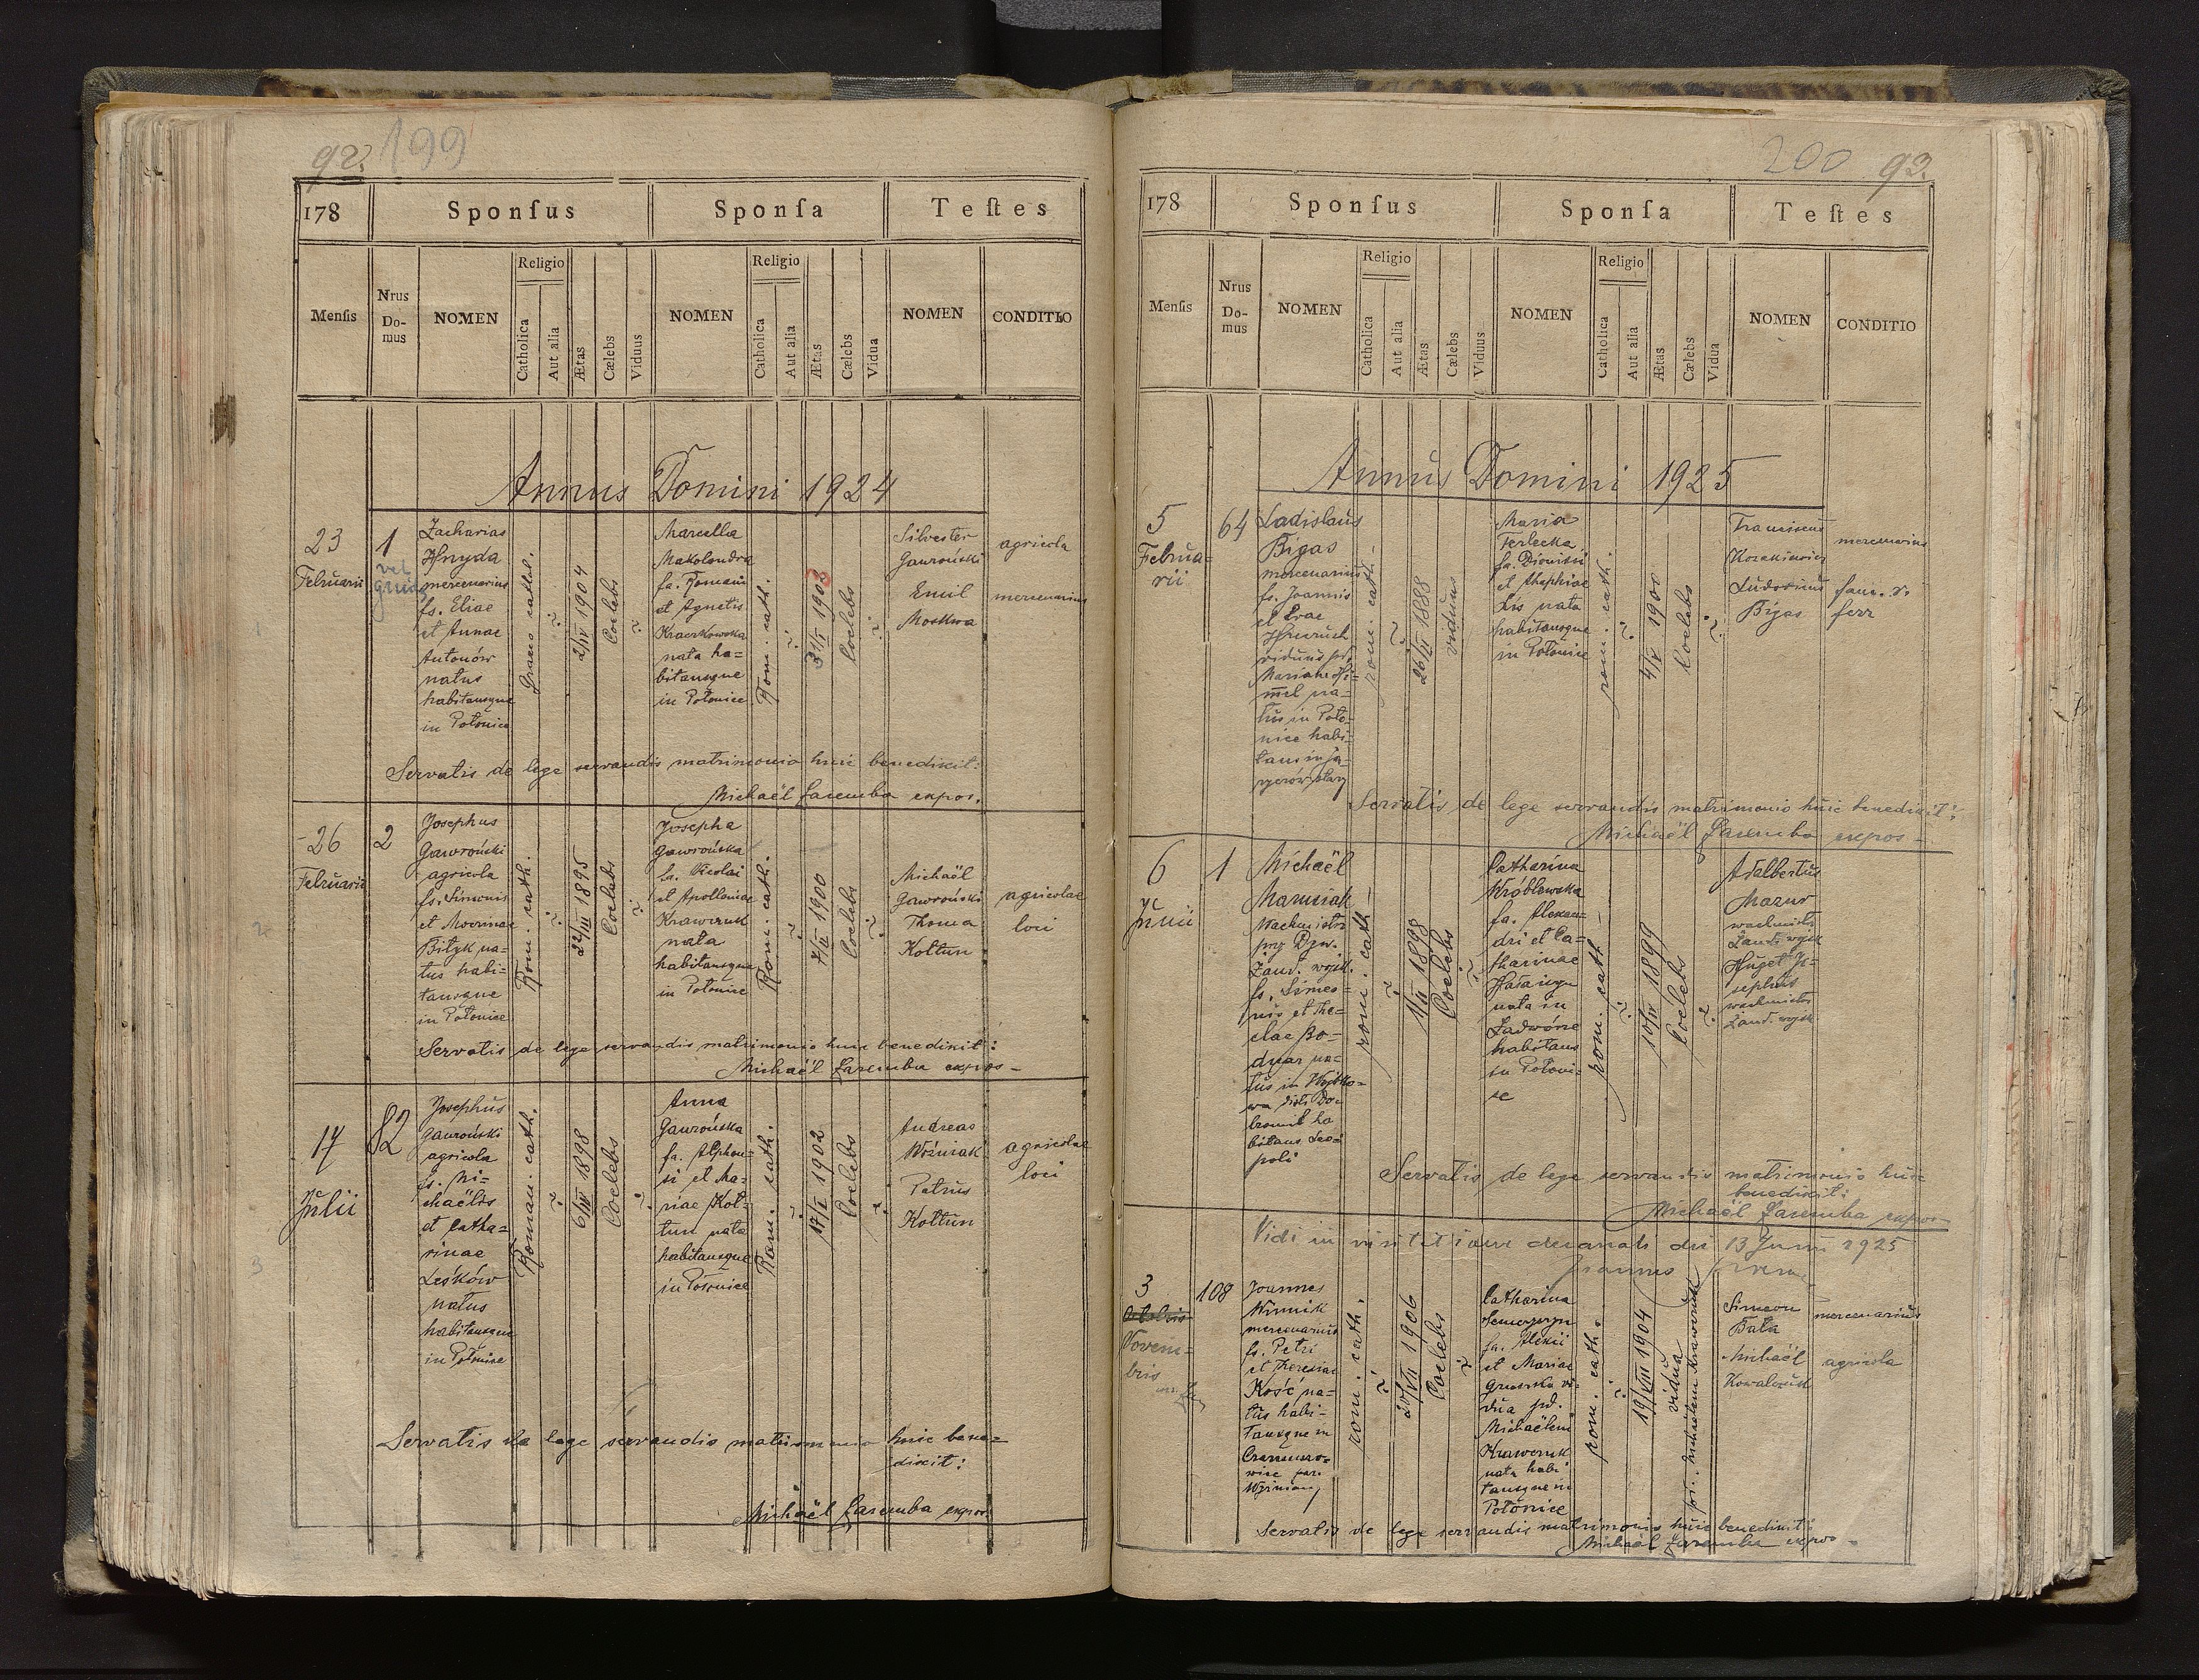 92. 199
178 Sponſus Sponſa Teſtes
Menſis Nrus Do- mus NOMEN Religio Catholica Aut alia Ætas Cælebs Viduus NOMEN Religio Catholica Aut alia Ætas Cælebs Vidua NOMEN CONDITIO
Annus Domini 1924
23
Februarii
1
vel
Zacharias
Hnyda
mercenarius
fs. Eliae
et Annae
Antonów
natus
habitansque
in Połonice
Graeco cathol.
2/IV 1904
Coelebs
Marcella
Makolondra
fa. Romani
et Agnetis
Kraczkowska
nata ha=
bitansque
in Połonice
Rom. cath.
31/I 1903
Coelebs
Silvester
Gawroński
Emil
Moskwa
agricola
mercenarius
Servatis de lege servandis matrimonio huic benedixit:
Michaël Zaremba expos.
26
Februarii
2
Josephus
Gawroński
agricola
fs. Simonis
et
Bityk na=
tus habi=
tansque
in Połonice
Rom. cath.
22/III 1895
Coelebs
Josepha
Gawrońska
fa. Nicolai
et Apolloniae
Krawczuk
nata
habitansque
in Połonice
Rom. cath.
7/II 1900
Coelebs
Michaël
Gawroński
Thoma
Kołtun
agricolae
loci
Servatis de lege servandis matrimonio huic benedixit:
Michaël Zaremba expos-
17
Julii
82
Josephus
Gawroński
agricola
fs. Mi=
chaëlis
et Catha=
rinae
Leśków
natus
habitansque
in Połonice
Roman. cath.
6/III 1898
Coelebs
Anna
Gawrońska
fa. Alphon=
si et Ma=
riae Koł=
tun nata
habitansque
in Połonice
Rom. cath.
17/I 1902
Coelebs
Andreas
Woźniak
Petrus
Kołtun
agricolae
loci
Servatis de lege servandis matrimonio huic bene=
dixit:
Michaël Zaremba expos.
200 93.
178 Sponſus Sponſa Teſtes
Menſis Nrus Do- mus NOMEN Religio Catholica Aut alia Ætas Cælebs Viduus NOMEN Religio Catholica Aut alia Ætas Cælebs Vidua NOMEN CONDITIO
Annus Domini 1925
5
Februa=
rii
64
Ladislaus
Bigas
mercenarius
fs. Joannis
et Evae
viduus
na=
tus in Poło=
nice habi=
rom. cath.
26/II 1888
viduus
Maria
Terlecka
fa. Dionisii
et
Lis nata
habitansque
in Połonice
rom. cath.
4/V 1900
Coelebs
Franciscus
Kozakiewicz
Ludovicus
Bigas
mercenarius
ferr
Servatis de lege servandis matrimonio huic benedixit:
Michaël Zaremba expos-
6
Junii
1
Michaël
Marusiak
Wachmistrz
przy Dyw.
Żand. wojsk.
fs. Simeo=
nis et The=
clae Bo=
dnar na=
tus in Wojtko=
wa distr. Do=
bromil ha
bitans Leo=
poli
rom. cath
1/II 1898
Coelebs
Catharina
Wróblewska
fa. Alexan=
dri et Ca=
tharinae
nata in
Zadwórze
habitans
in Połoni=
ce
rom. cath
10/IV 1899
Coelebs
Adalbertus
Mazur
wachmistrz
Żand. wojsk
Huget Jo=
sephus
wachmistrz
Żand. wojsk
Servatis de lege servandis matrimonio huic
benedixit:
Michaël Zaremba expos
Vidi in visitatione decanali die 13 Junii 1925
3
Octobris
Novem=
bris
108
Joannes
Winnik
mercenarius
fs. Petri
et Theresiae
Kość na=
tus habi=
tansque in
wice par.
Wyżniany
rom. cath.
20/VII 1906
Coelebs
Catharina
fa. Alexii
et Mariae
Gruszka vi=
dua
Michaëlem
Krawczuk
nata habi
tansque in
Połonice
rom. cath.
19/VIII 1904
vidua
Michaëlem Krawczuk
Simeon
Bała
Michaël
Kowalczuk
mercenarius
agricola
Servatis de lege servandis matrimonio huic benedixit:
Michaël Zaremba expos-